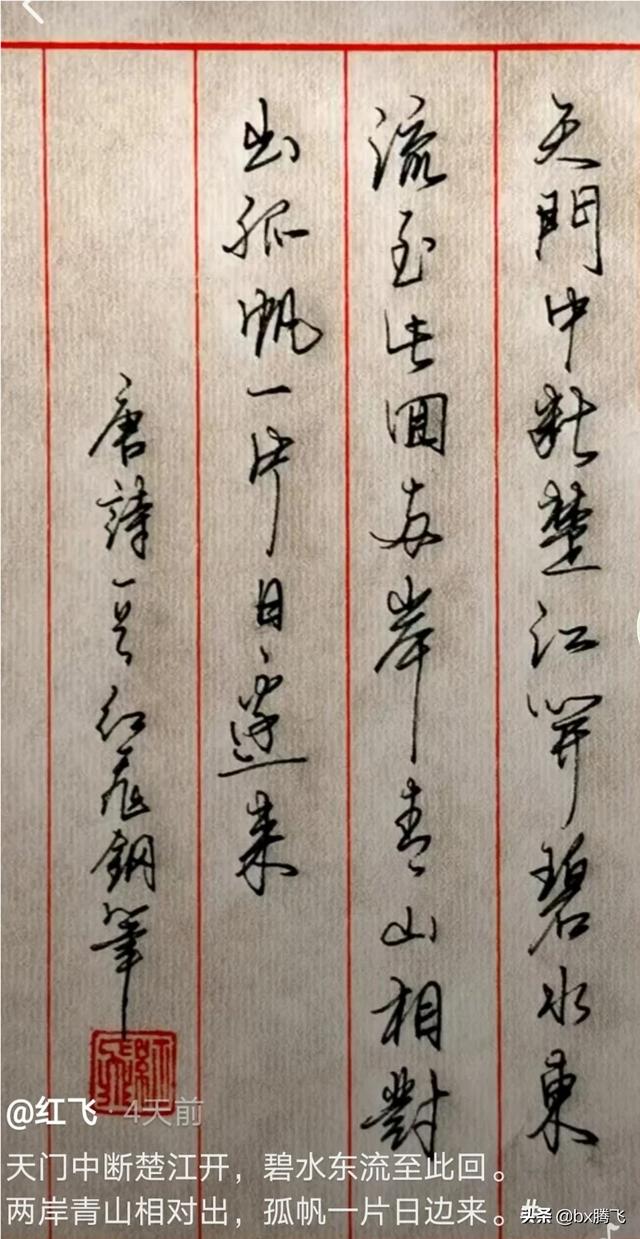 天門中断楚江開碧水東
流至此回两岸青山相對
出孤帆一片日邊来
唐詩一首红飛鋼筆
红飛
@红飞 · 4天前
天门中断楚江开，碧水东流至此回。
两岸青山相对出，孤帆一片日边来。#
头条 @bx腾飞